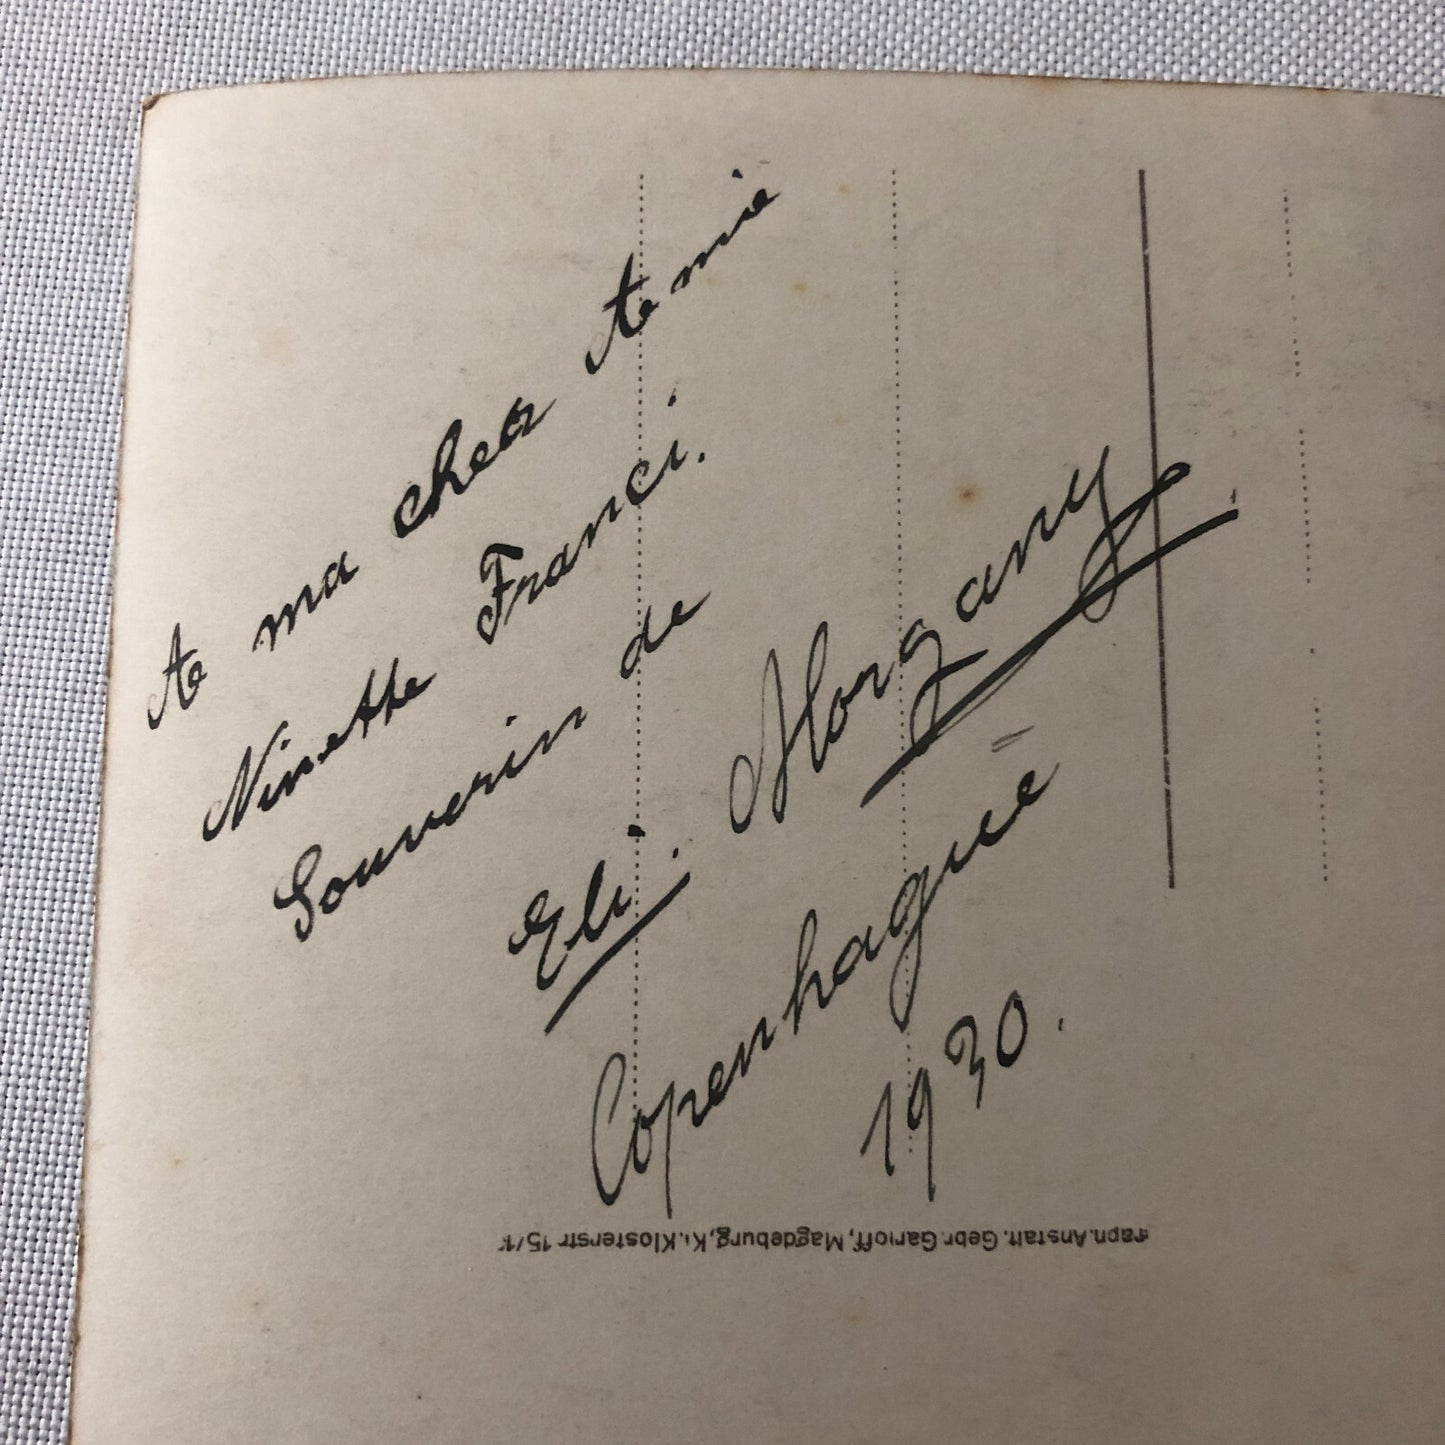 A ma cher Amie
Ninette Franci.
Souverin de
Eli. Morgany.
Copenhague
1930.
Anstalt. Gebr. Garloff, Magdeburg, Kl. Klosterstr 15/